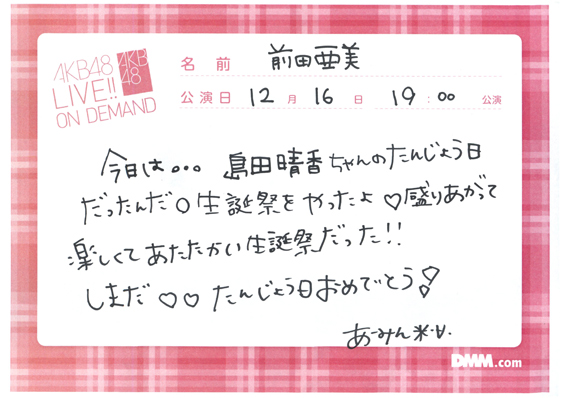 AKB48
LIVE!!
ON DEMAND
AKB
48
名前 前田亜美
公演日 12月16日 19:00 公演
今日は。。。 島田晴香ちゃんのたんじょう日
だったんだ○生誕祭をやったよ♡盛りあがって
楽しくてあたたかい生誕祭だった!!
しまだ♡♡たんじょう日おめでとう!
あーみん
DMM.com